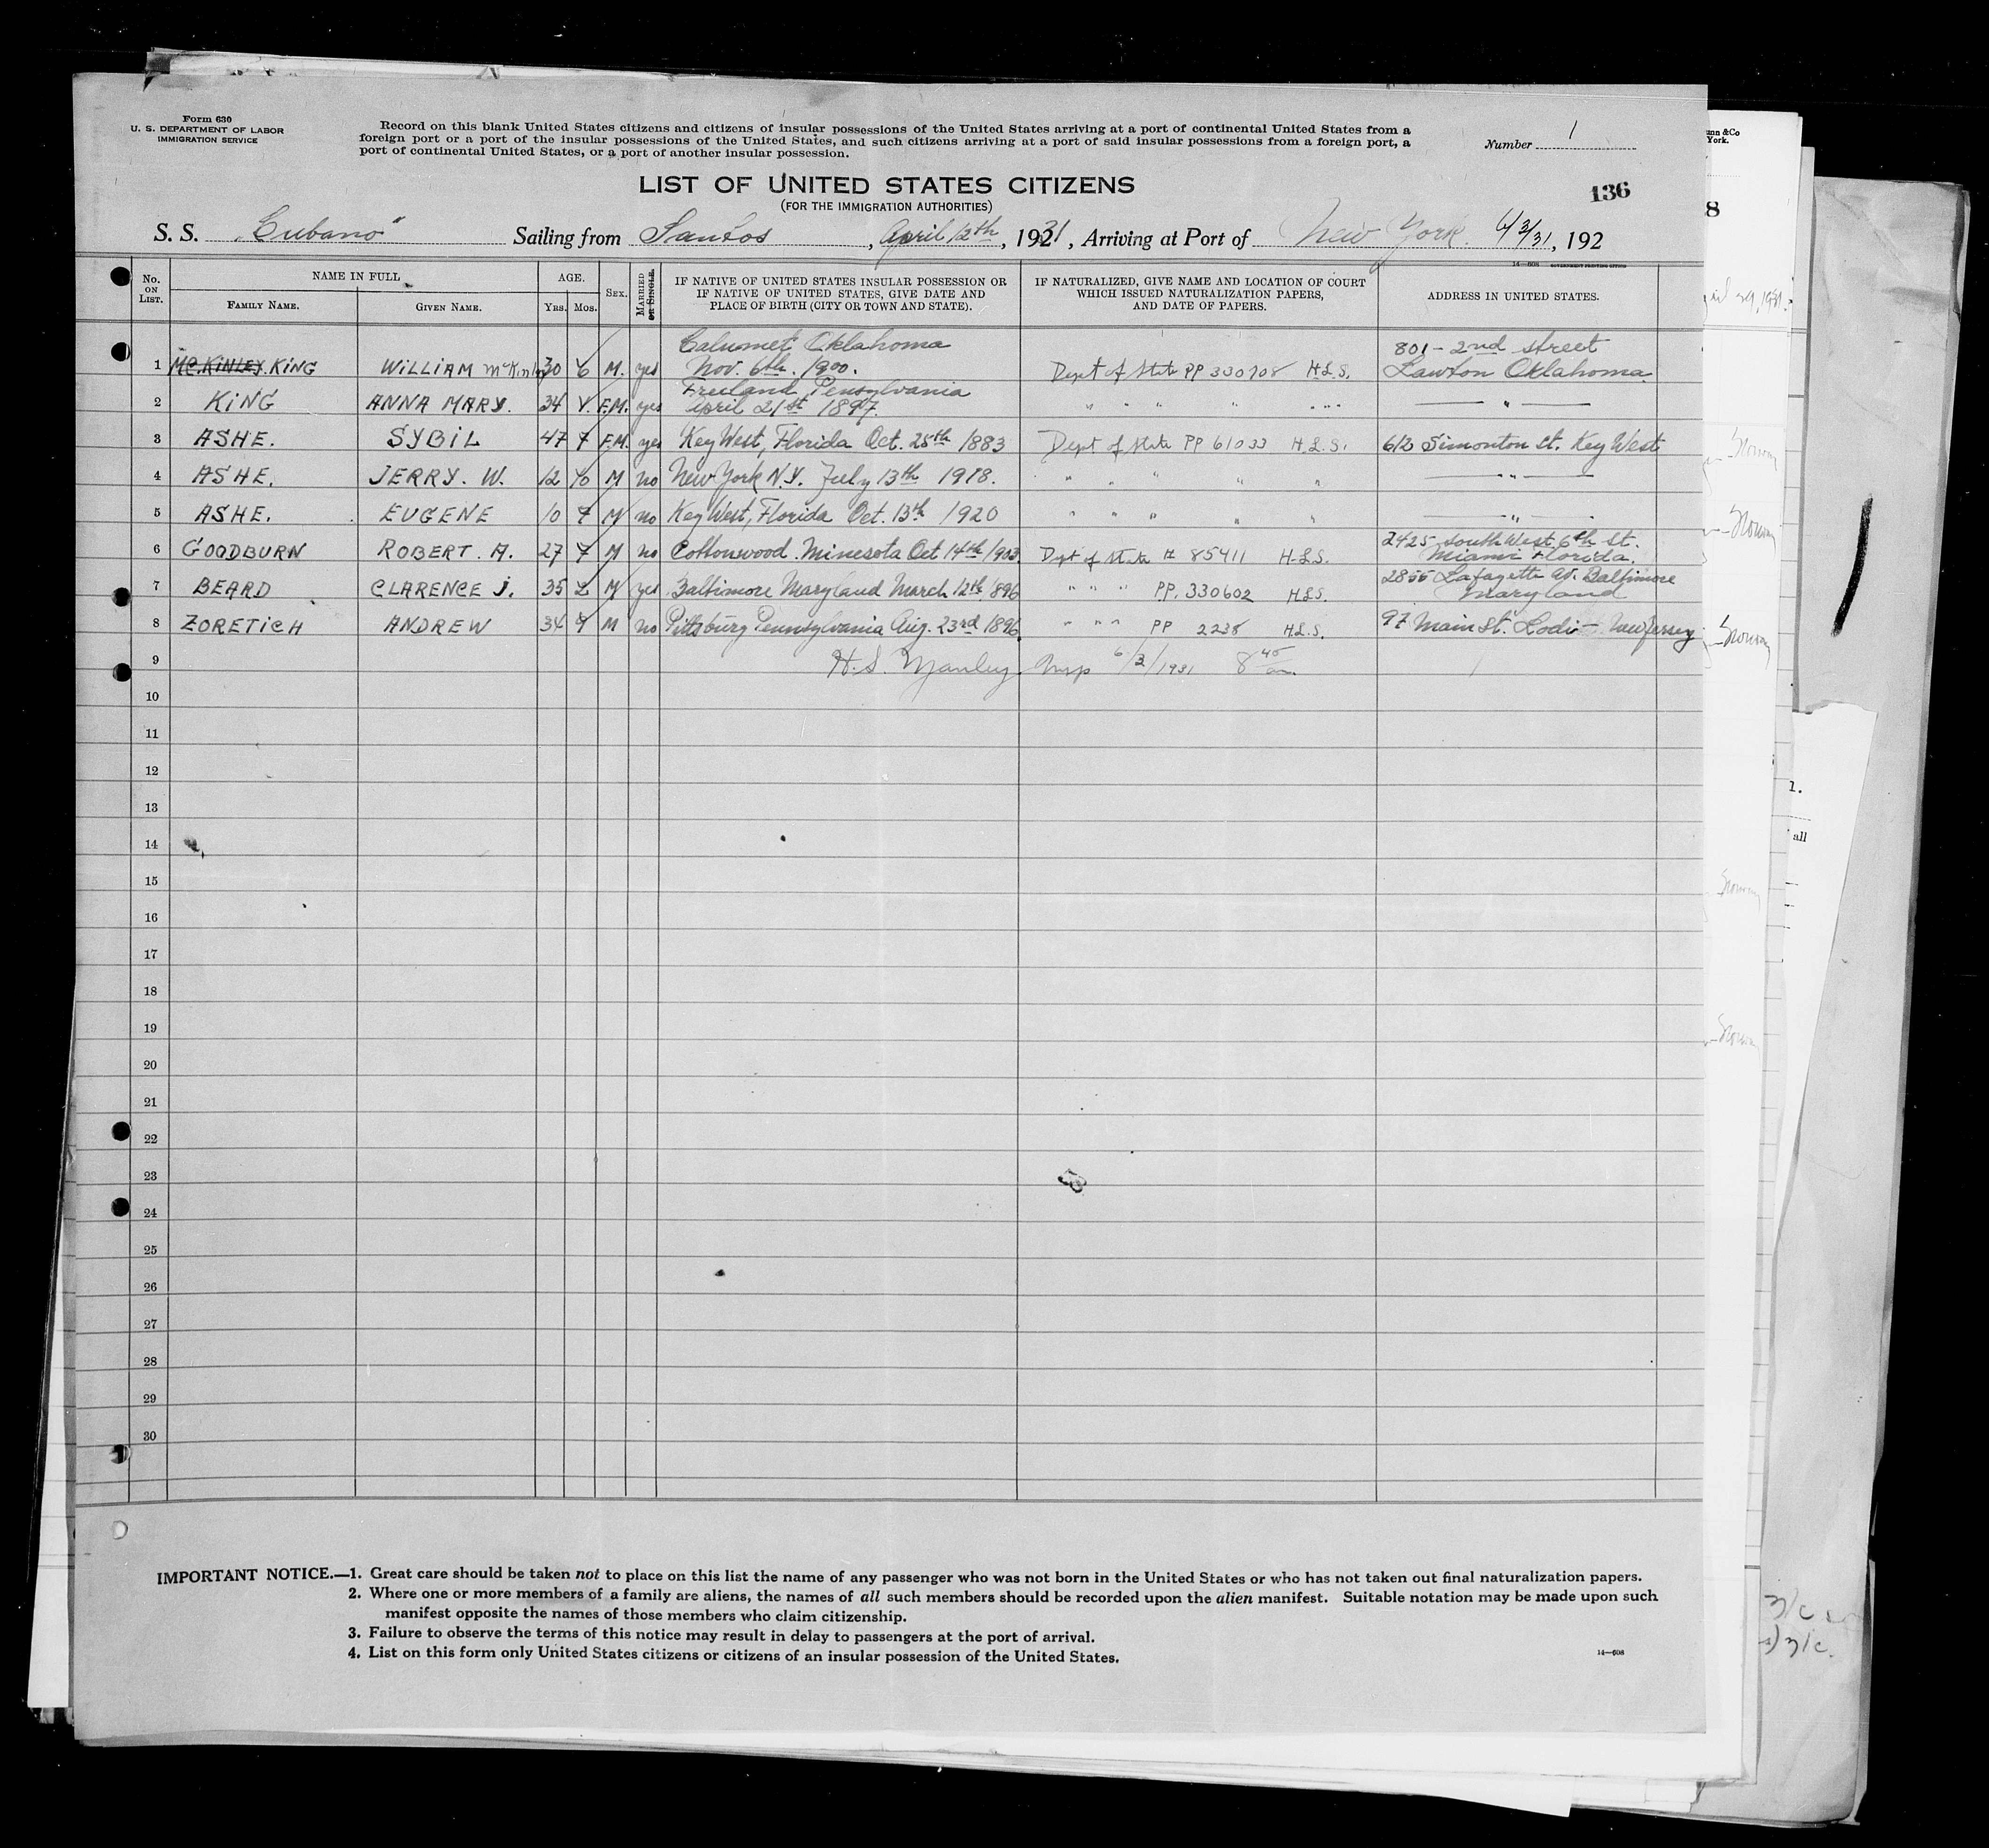 Form 630
U. S. DEPARTMENT OF LABOR
IMMIGRATION SERVICE
Record on this blank United States citizens and citizens of insular possessions of the United States arriving at a port of continental United States from a
foreign port or a port of the insular possessions of the United States, and such citizens arriving at a port of said insular possessions from a foreign port, a
port of continental United States, or a port of another insular possession.
Number 1
LIST OF UNITED STATES CITIZENS
(FOR THE IMMIGRATION AUTHORITIES)
136
S. S. "Cubano" Sailing from Santos, April 12th, 1931, Arriving at Port of New York. 6/3/31, 192
14—608 GOVERNMENT PRINTING OFFICE
No. ON LIST.
NAME IN FULL
FAMILY NAME. GIVEN NAME.
AGE.
YRS. MOS.
SEX.
MARRIED OR SINGLE.
IF NATIVE OF UNITED STATES INSULAR POSSESSION OR
IF NATIVE OF UNITED STATES, GIVE DATE AND
PLACE OF BIRTH (CITY OR TOWN AND STATE).
IF NATURALIZED, GIVE NAME AND LOCATION OF COURT
WHICH ISSUED NATURALIZATION PAPERS,
AND DATE OF PAPERS.
ADDRESS IN UNITED STATES.
Calumet Oklahoma 801 - 2nd street
1 Mc.KINLEY. KING WILLIAM McKinley 30 6 M. yes Nov. 6th. 1900. Dept of State PP 330708 H.L.S. Lawton Oklahoma
Freeland, Pensylvania
2 KING ANNA MARY. 34 F.M. yes April 21st 1897. " " " " " " " — " —
3 ASHE. SYBIL 47 7 F.M. yes Key West, Florida Oct. 28th 1883 Dept of State PP 61033 H.L.S. 612 Simonton St. Key West
4 ASHE. JERRY. W. 12 10 M no New York N.Y. July 13th 1918. " " " " " — " —
5 ASHE. EUGENE 10 7 M no Key West, Florida Oct. 13th 1920 " " " " " — " —
2425 South West 6th St.
6 GOODBURN ROBERT. A. 27 7 M no Cottonwood. Minesota Oct 14th 1903 Dept of State # 85411 H.L.S. Miami Florida.
2855 Lafayette av. Baltimore
7 BEARD CLARENCE J. 35 2 M yes Baltimore Maryland March 12th 1896 " " " PP. 330602 H.L.S. Maryland
8 ZORETICH ANDREW 34 9 M no Pittsburg Pennsylvania Aug. 23rd 1896. " " " PP 2238 H.L.S. 97 Main St. Lodi - New Jersey
9 H.S. Manley Insp 6/3/1931 8 45 am.
10
11
12
13
14
15
16
17
18
19
20
21
22
23
24
25
26
27
28
29
30
IMPORTANT NOTICE.—1. Great care should be taken not to place on this list the name of any passenger who was not born in the United States or who has not taken out final naturalization papers.
2. Where one or more members of a family are aliens, the names of all such members should be recorded upon the alien manifest. Suitable notation may be made upon such
manifest opposite the names of those members who claim citizenship.
3. Failure to observe the terms of this notice may result in delay to passengers at the port of arrival.
4. List on this form only United States citizens or citizens of an insular possession of the United States.
14—608
&Co
York.
8
1.
all